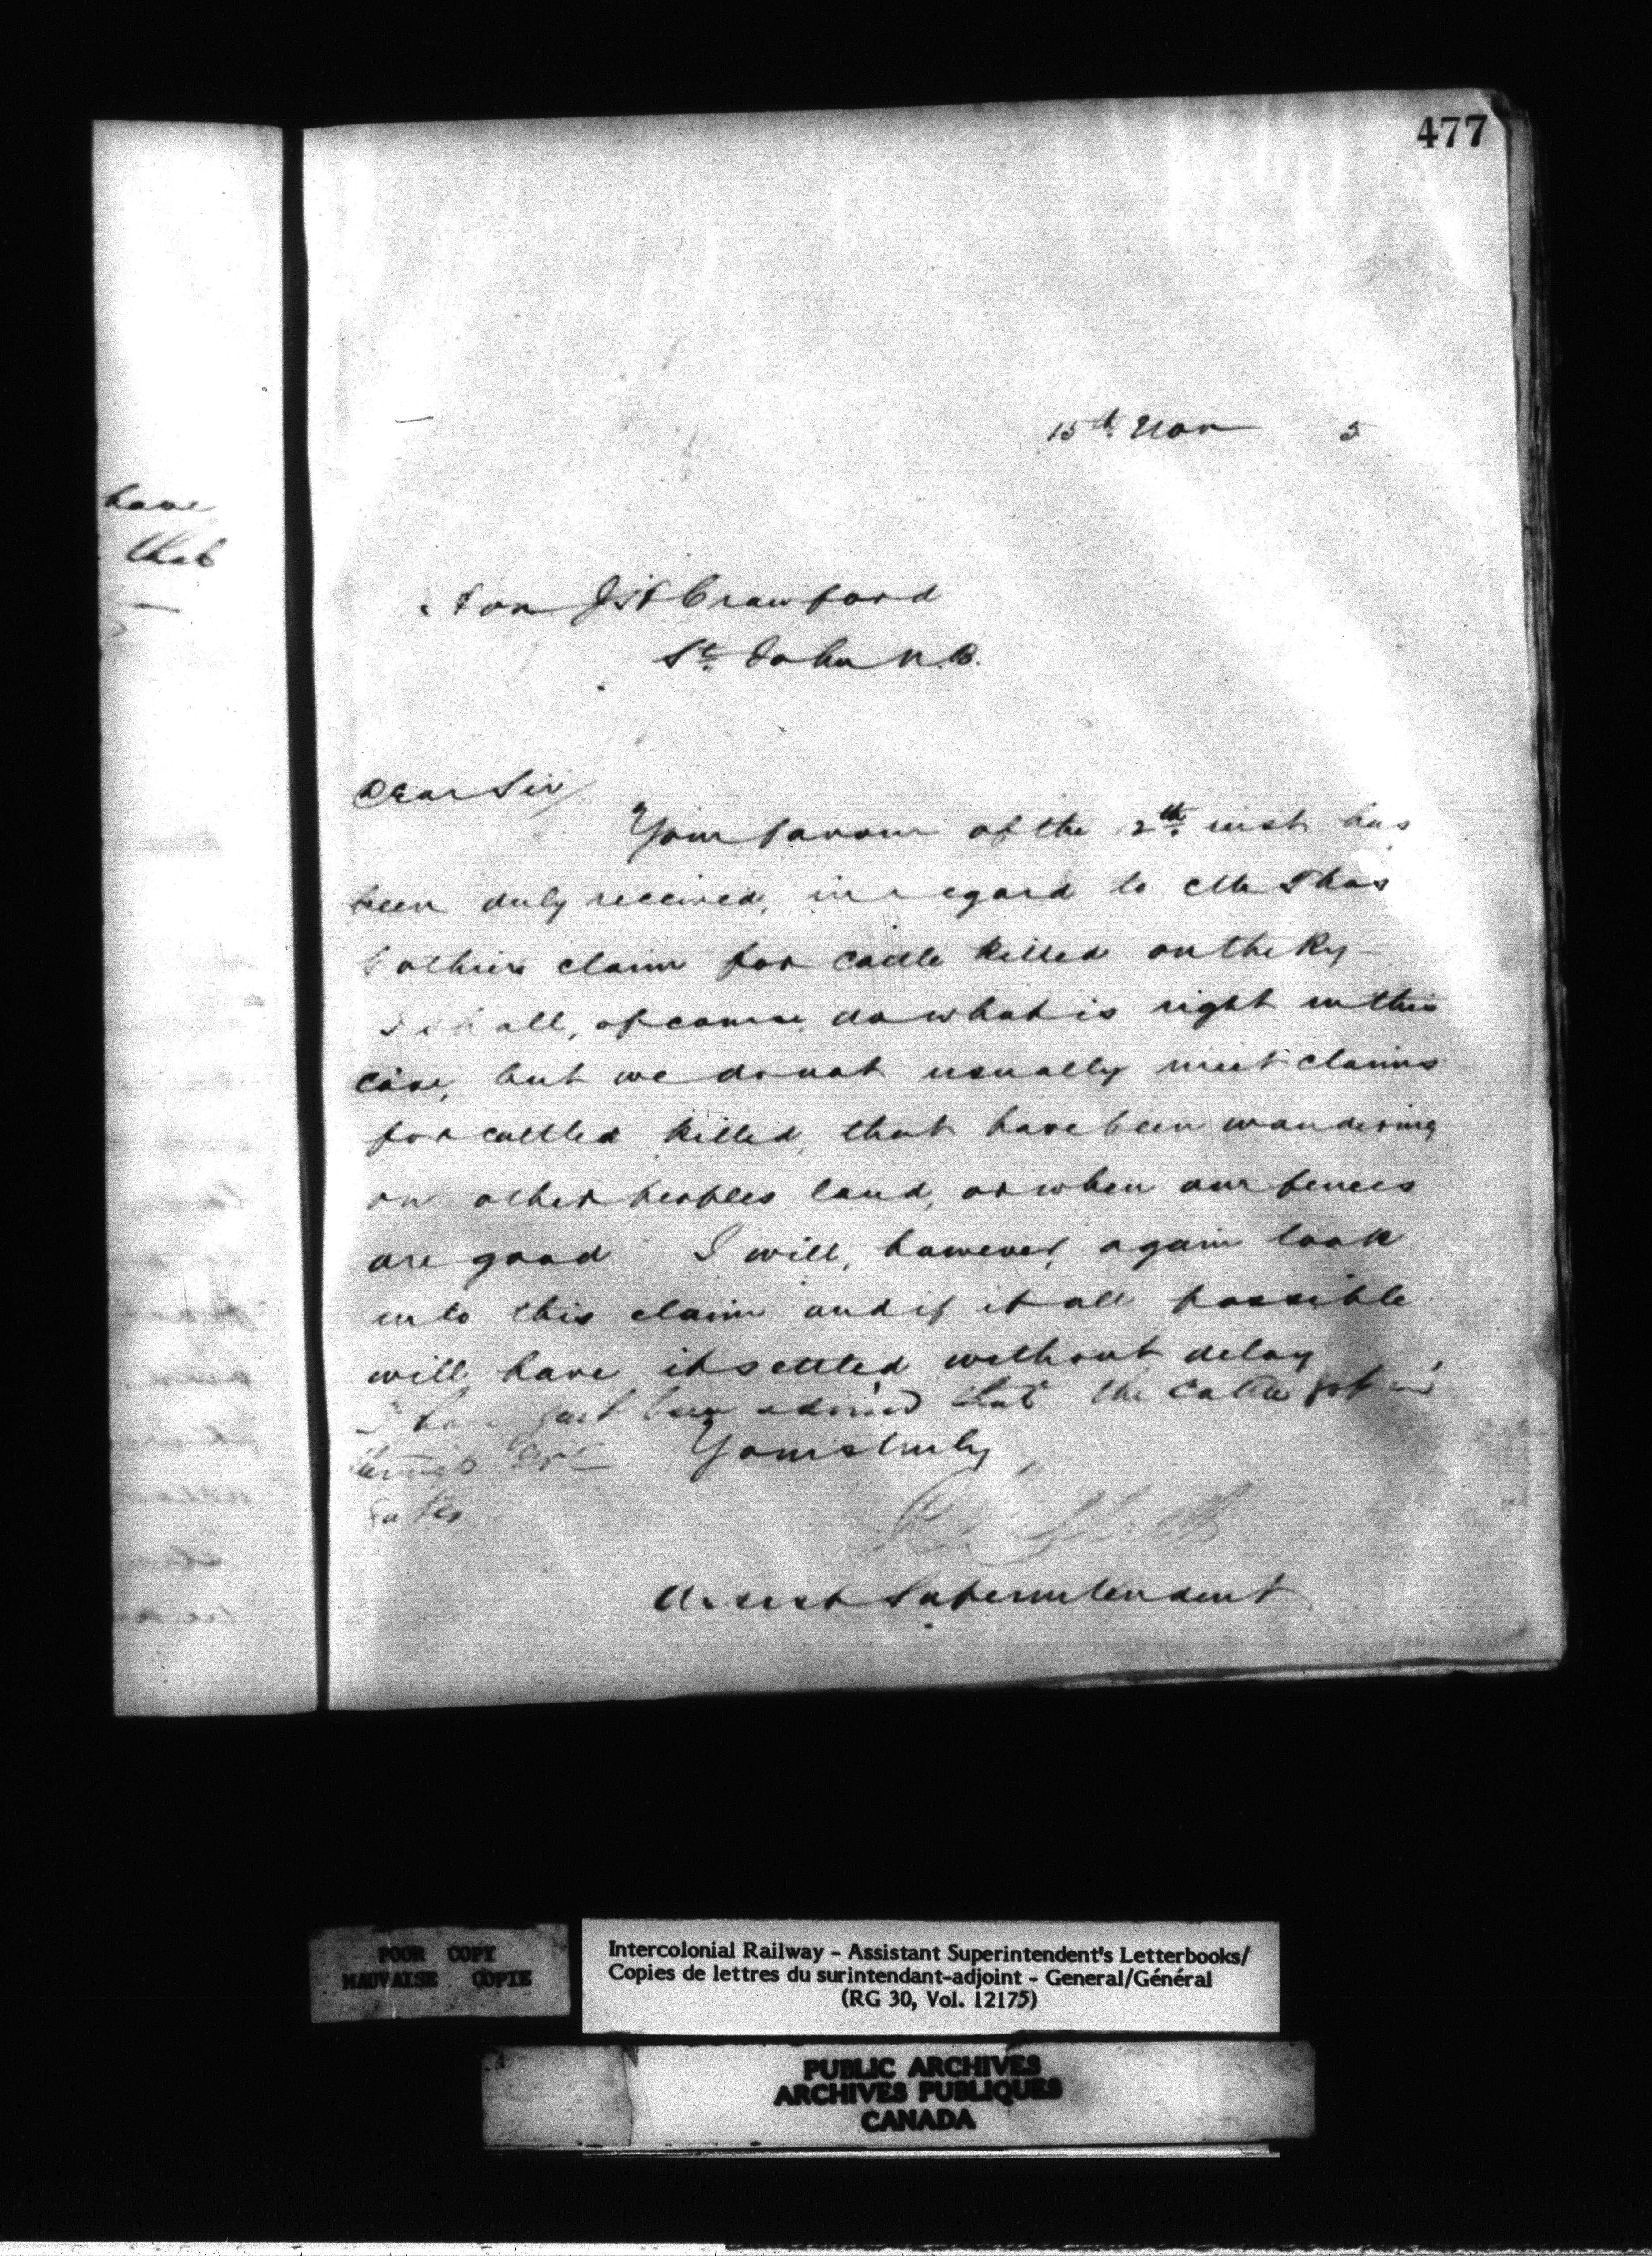 477
have
that
15th Nov 5
Hon J. H Crawford
St. John N.B.
Dear Sir/
Your favour of the 12th inst has
been duly received, in regard to Mr Thos
Cothers claim for cattle killed on the Ry –
I shall, of course, do what is right in this
case, but we do not usually meet claims
for cattled killed, that have been wandering
on other peoples land, or when our fences
are good I will, however, again look
into this claim and if it all possible
will have it settled without delay
I have just been advised that the cattle got in
through
gates
Yours truly
Assist Superintendent
POOR COPY
MAUVAISE COPIE
Intercolonial Railway – Assistant Superintendent's Letterbooks/
Copies de lettres du surintendant-adjoint – General/Général
(RG 30, Vol. 12175)
PUBLIC ARCHIVES
ARCHIVES PUBLIQUES
CANADA